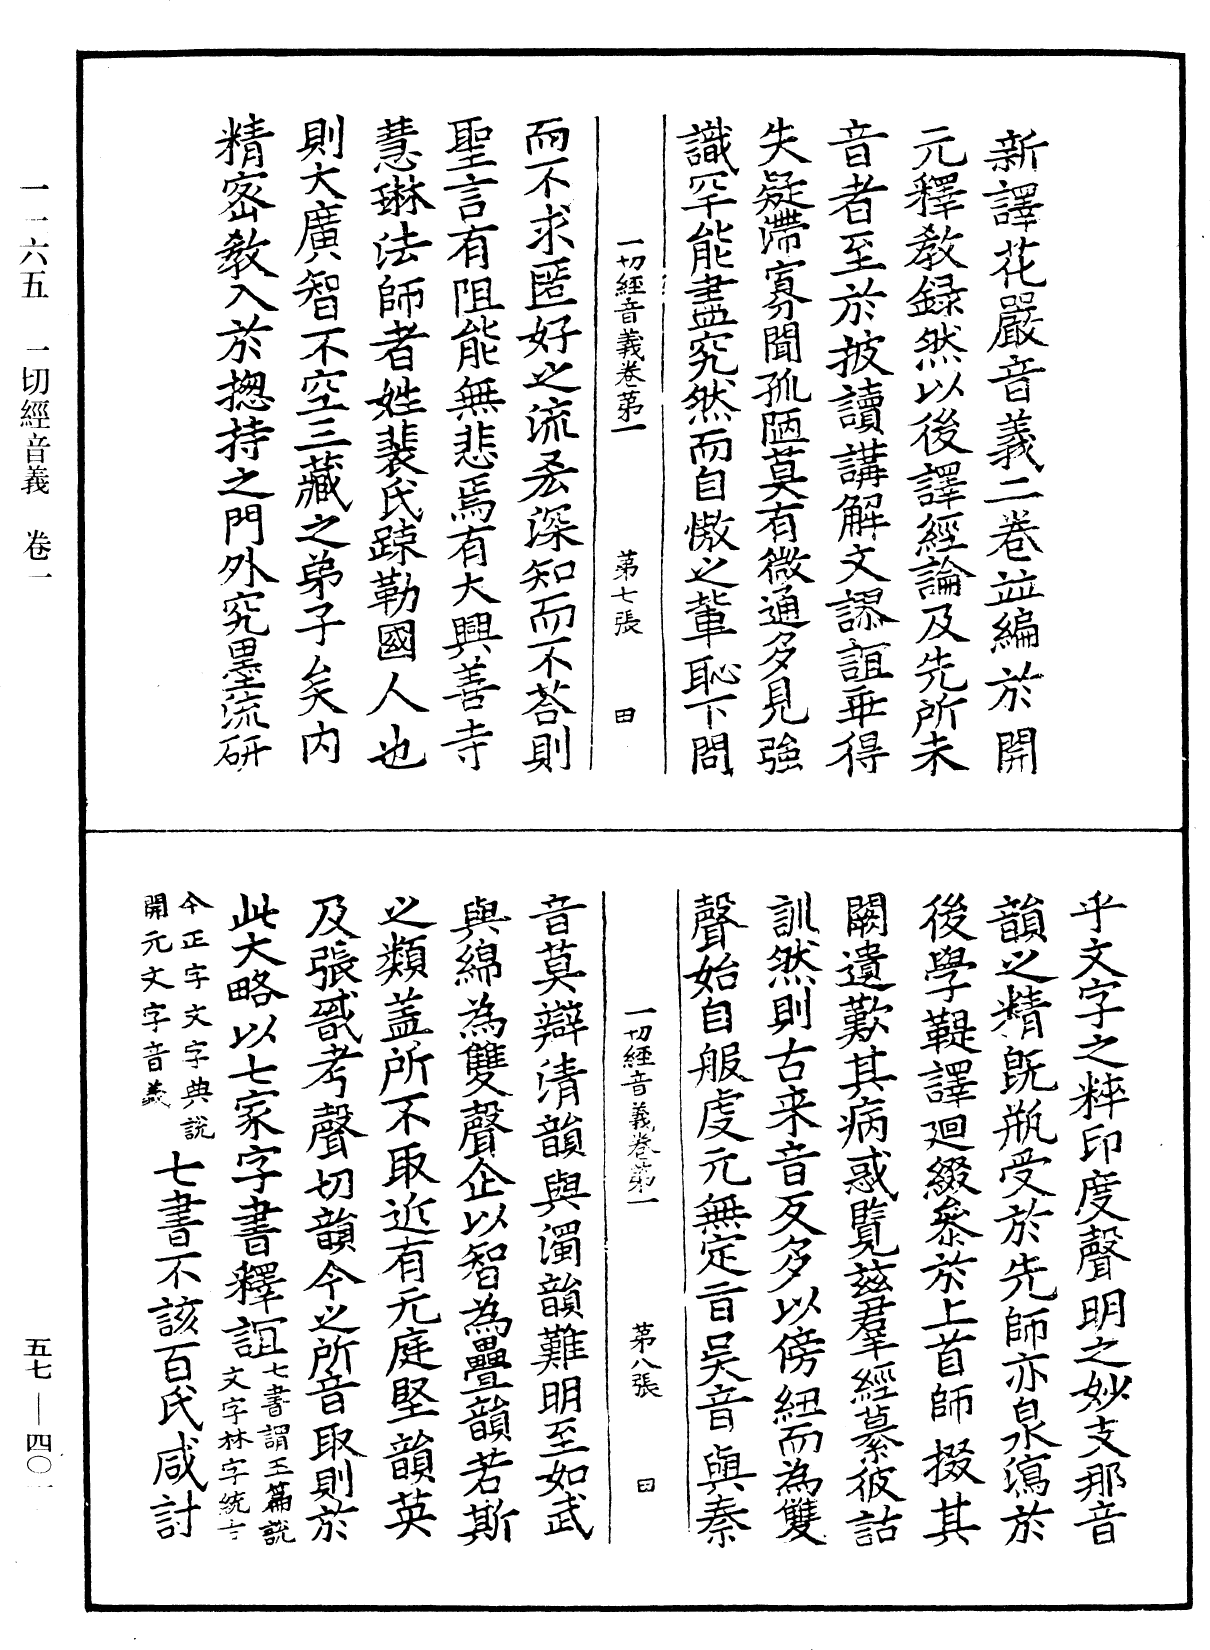 新譯花嚴音義二卷並編於開
元釋教録然以後譯經論及先所未
音者至於披讀講解文謬誼乖得
失疑滯寡聞孤陋莫有微通多見強
識罕能盡究然而自憿之輩恥下問
一切經音義卷第一　第七張　田
而不求匿好之流吝深知而不荅則
聖言有阻能無悲焉有大興善寺
慧琳法師者姓裴氏踈勒國人也
則大廣智不空三藏之弟子矣内
精密教入於揔持之門外究墨流研
乎文字之粹印度聲明之妙支那音
韻之精既瓶受於先師亦泉瀉於
後學鞮譯迴綴叅於上首師掇其
闕遺歎其病惑覽兹羣經纂彼詁
訓然則古来音反多以傍紐而為雙
聲始自服虔元無定旨吴音與秦
一切經音義卷第一　第八張　田
音莫辯清韻與濁韻難明至如武
與綿為雙聲企以智為疊韻若斯
之類盖所不取近有元庭堅韻英
及張戩考聲切韻今之所音取則於
此大略以七家字書釋誼七書謂玉篇說
文字林字統古
今正字文字典説
開元文字音義
七書不該百氏咸討
一一六五　一切經音義　卷一
五七—四〇一